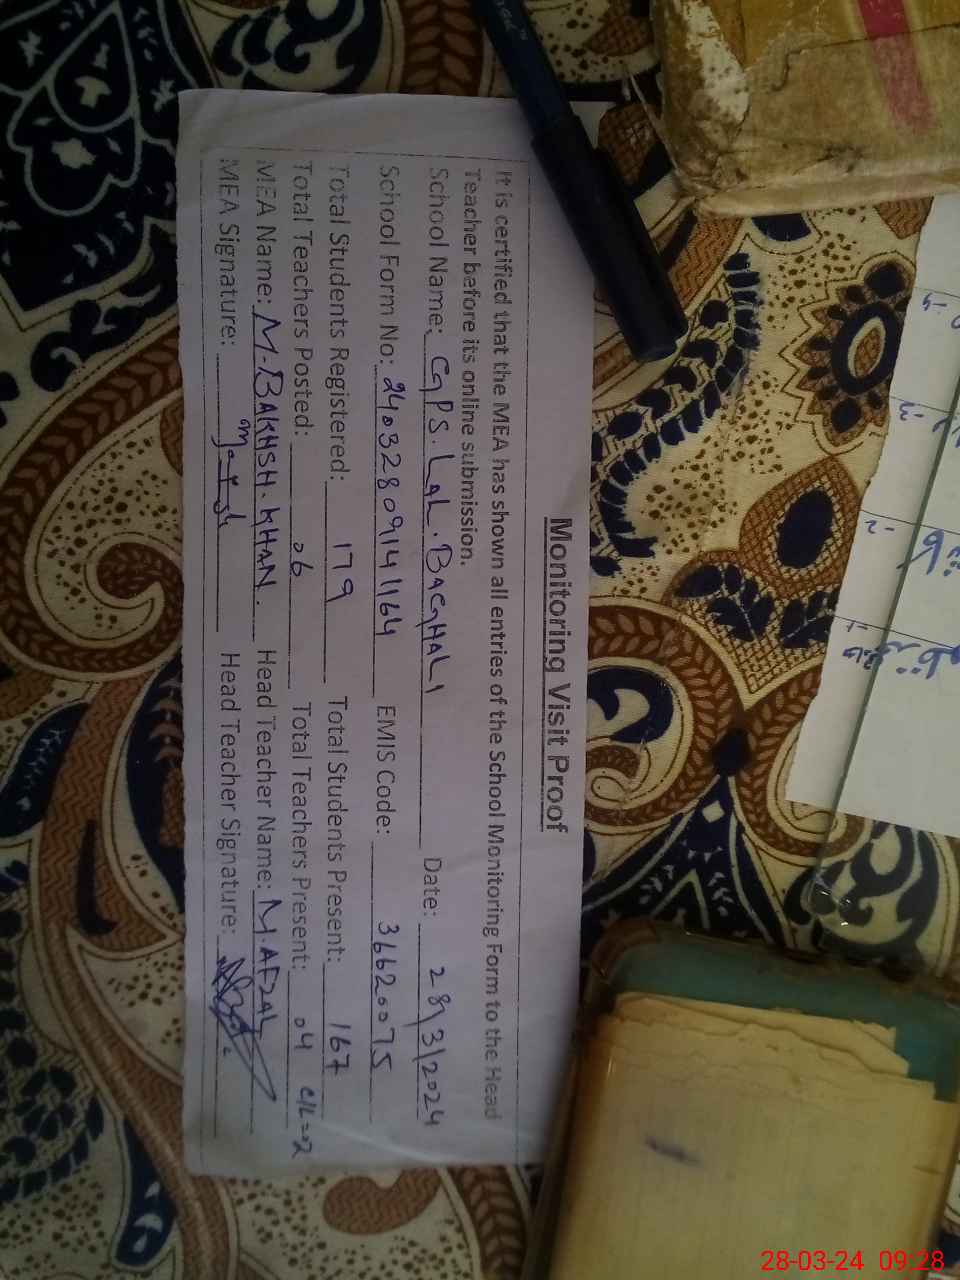 Monitoring Visit Proof
It is certified that the MEA has shown all entries of the School Monitoring Form to the Head
Teacher before its online submission.
School Name: GPS. LAL. BAGHALI Date: 28/3/2024
School Form No: 24032809141164 EMIS Code: 36620075
Total Students Registered: 179 Total Students Present: 167
Total Teachers Posted: 06 Total Teachers Present: 04 C/L=02
MEA Name: M-BAKHSH.KHAN. Head Teacher Name: M.AFZAL
MEA Signature: Head Teacher Signature:
28-03-24 09:28